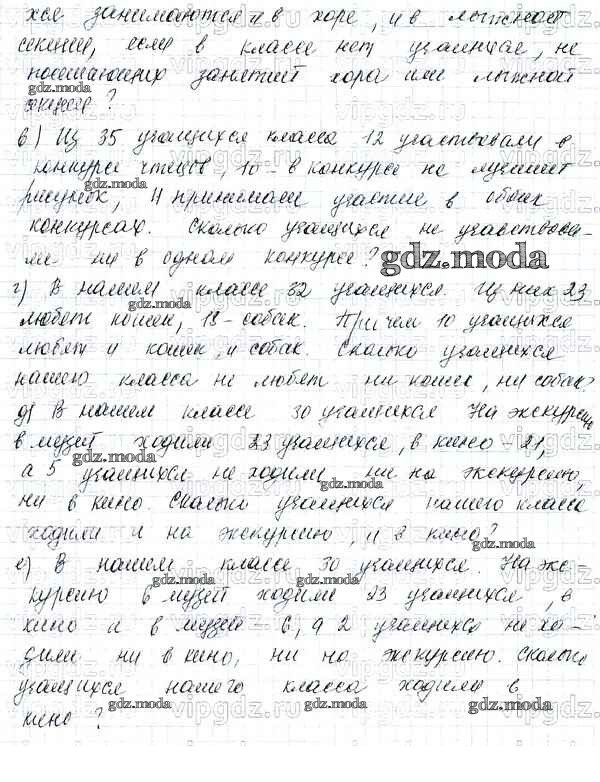 хся занимаются и в хоре, и в лыжной
секции, если в классе нет учащихся, не
посещающих занятий хора или лыжной
gdz.moda
секции?
в) Из 35 учащихся класса 12 участвовали в
конкурсе чтецов, 10 - в конкурсе на лучший
рисунок, 4 принимали участие в обоих
gdz.moda
конкурсах. Сколько учащихся не участвова-
ли ни в одном конкурсе?
gdz.moda
г) В нашем классе 32 учащихся. Из них 23
gdz.moda
любят кошек, 18 - собак. Причем 10 учащихся
любят и кошек, и собак. Сколько учащихся
нашего класса не любят ни кошек, ни собак?
д) В нашем классе 30 учащихся. На экскурсию
в музей ходили 23 учащихся, в кино - 21,
gdz.moda
а 5 учащихся не ходили ни на экскурсию,
gdz.moda
ни в кино. Сколько учащихся нашего класса
ходили и на экскурсию, и в кино?
gdz.moda
е) В нашем классе 30 учащихся. На экс-
gdz.moda gdz.moda
курсию в музей ходили 23 учащихся, в
кино и в музей - 6, а 2 учащихся не хо-
дили ни в кино, ни на экскурсию. Сколько
учащихся нашего класса ходили в
gdz.moda gdz.moda
кино?